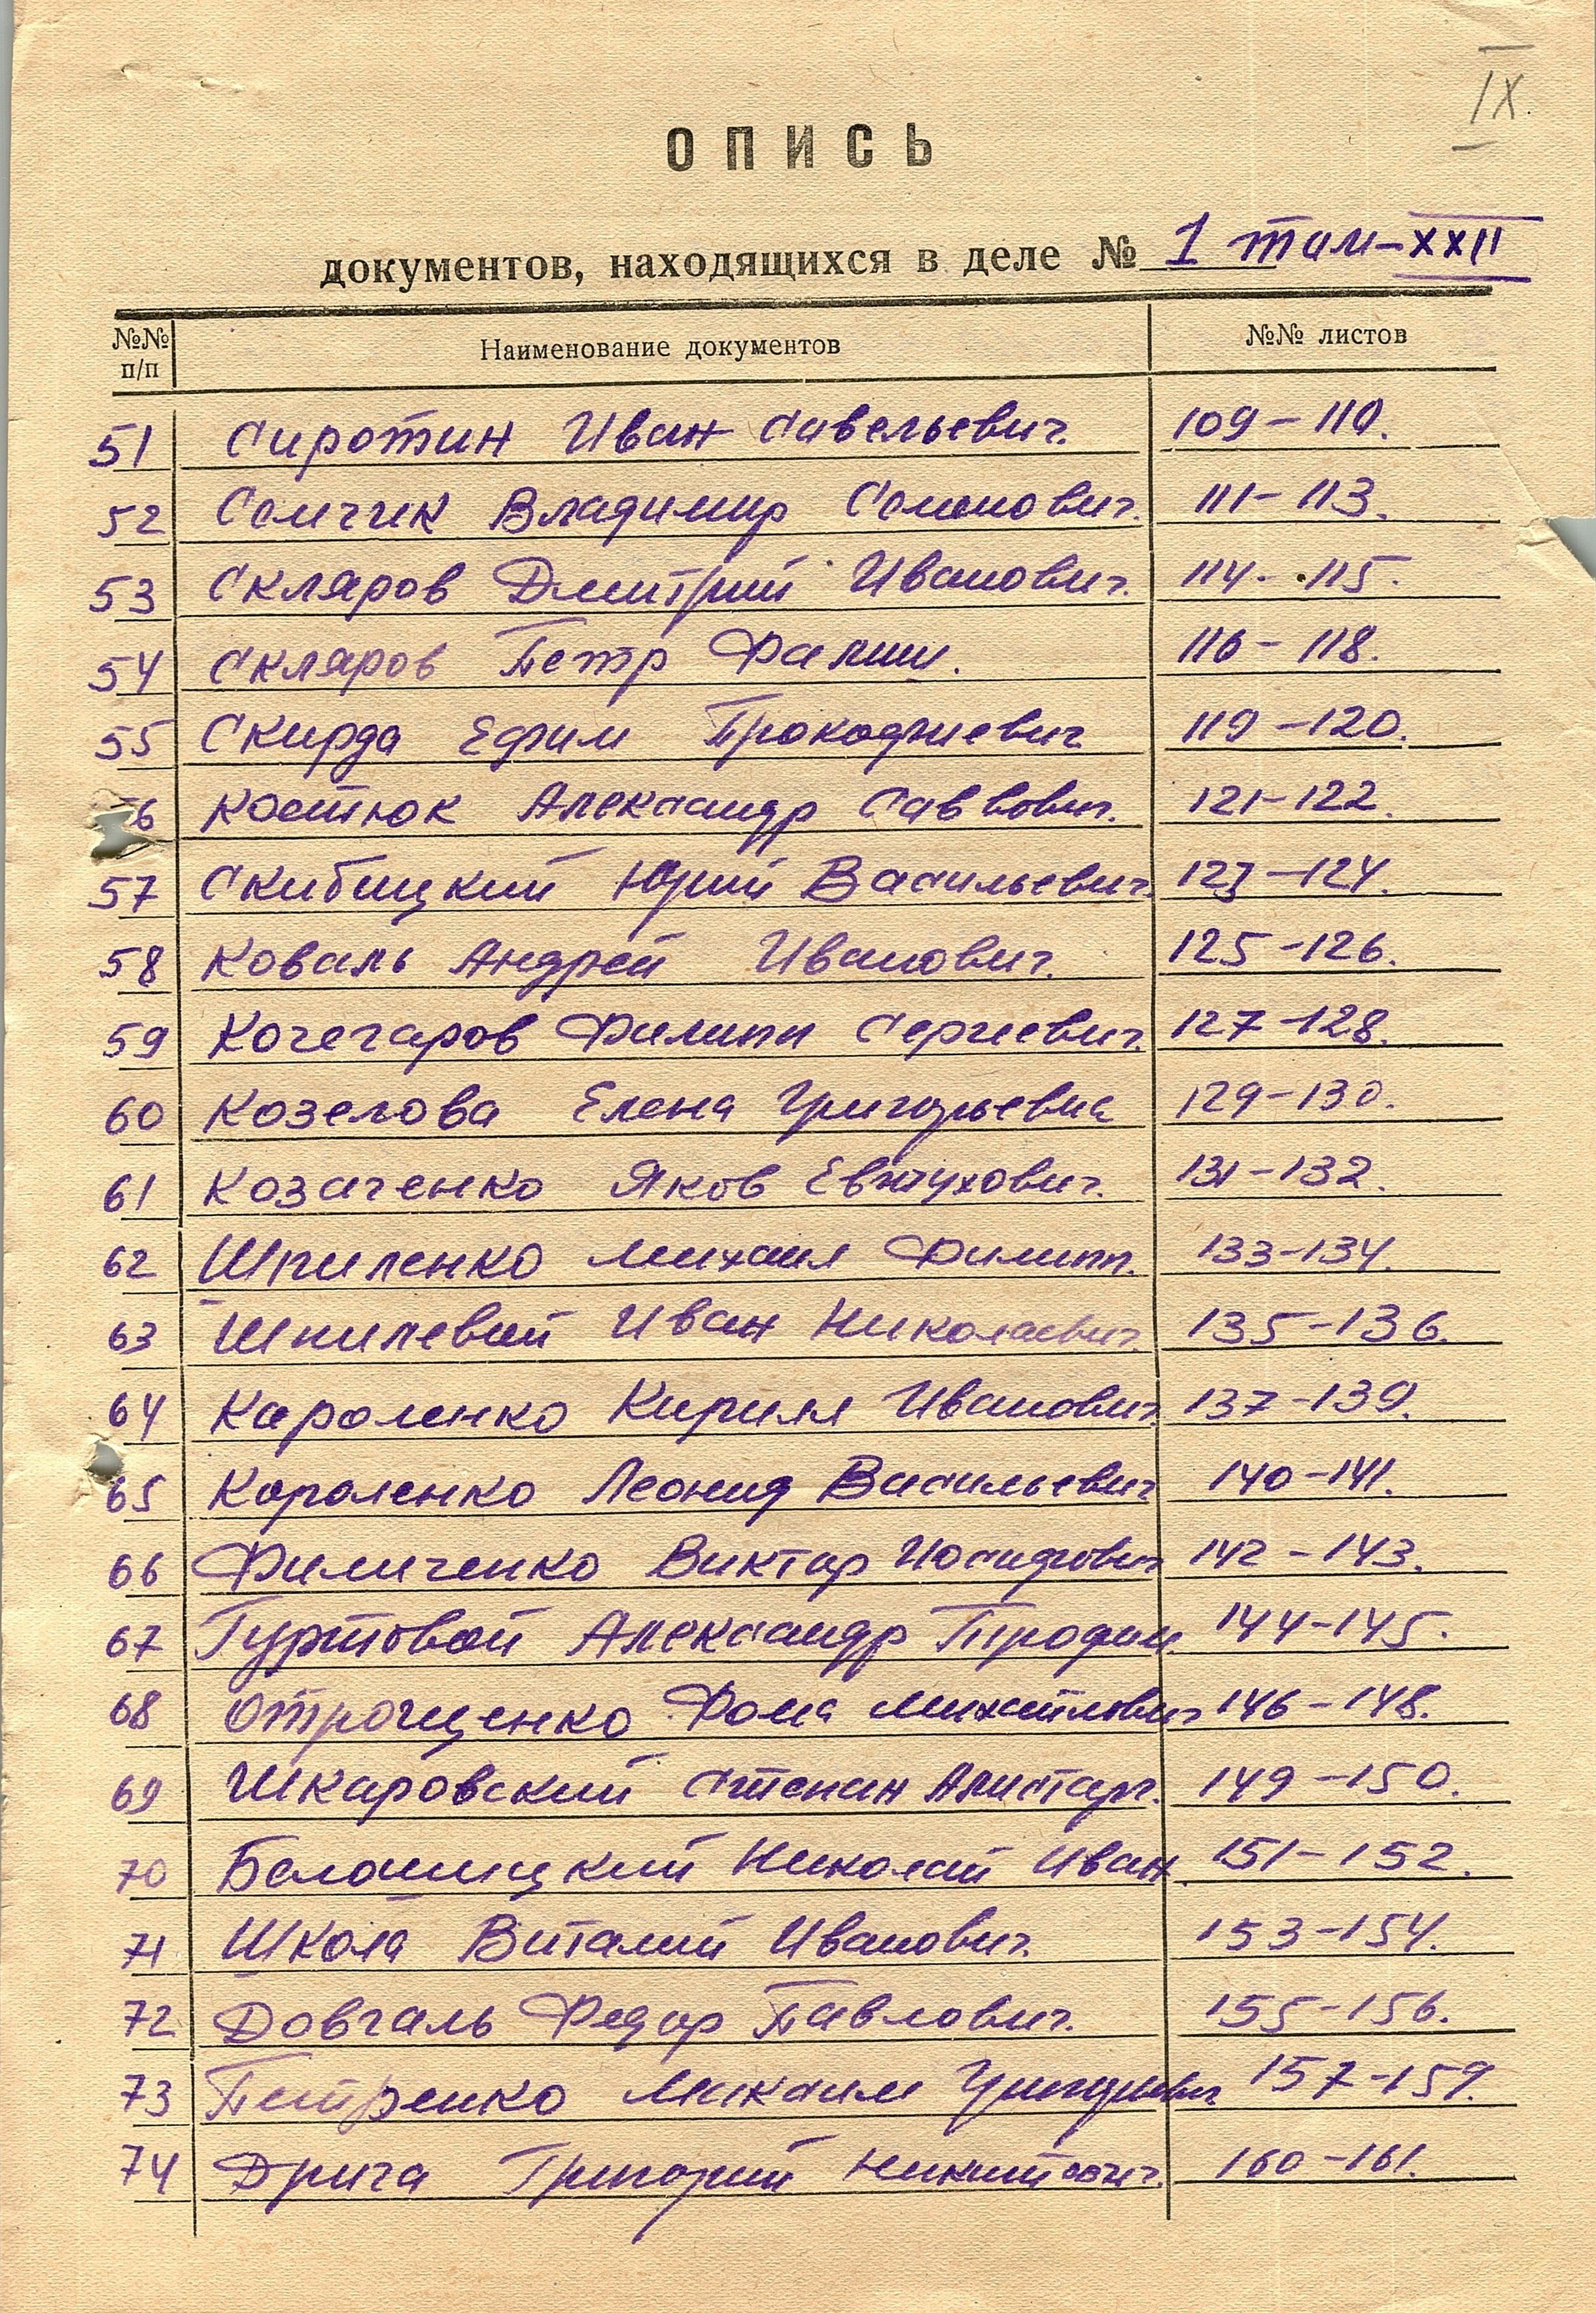 IX.
ОПИСЬ
документов, находящихся в деле № 1 том-XXII
№№ п/п Наименование документов №№ листов
51 Сиротин Иван Савельевич. 109-110.
52 Семчик Владимир Семенович. 111-113.
53 Скляров Дмитрий Иванович. 114-115.
54 Скляров Петр 116-118.
55 Скирда Ефим Прокофиевич 119-120.
56 Костюк Александр Саввович. 121-122.
57 Скибицкий Юрий Васильевич. 123-124.
58 Коваль Андрей Иванович. 125-126.
59 Кочегаров Филипп Сергиевич. 127-128.
60 Козелова Елена Григорьевна 129-130.
61 Козаченко Яков Евтухович. 131-132.
62 Шпиленко Михаил Филипп. 133-134.
63 Шпилевой Иван Николаевич. 135-136.
64 Короленко Кирилл Иванович 137-139.
65 Короленко Леонид Васильевич 140-141.
66 Филиченко Виктор Иосифович 142-143.
67 Гуртовой Александр Трофим. 144-145.
68 Отрощенко Фома Михайлович 146-148.
69 Шкаровский Степан Алистарх. 149-150.
70 Белошицкий Николай Иван. 151-152.
71 Школа Виталий Иванович. 153-154.
72 Довгаль Федор Павлович. 155-156.
73 Петренко Максим Григориевич 157-159.
74 Дрига Григорий Никитович. 160-161.